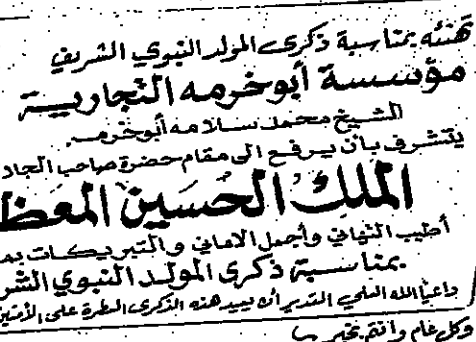 تهنئه بمناسبة ذكرى المولد النبوي الشريف
مؤسسة أبو خرمه التجارية
الشيخ محمد سلامه أبو خرمه
يتشرف بأن يرفع الى مقام حضرة صاحب الجلا
الملك الحسين المعظ
أطيب التهاني وأجمل الاماني والتبريكات بم
بمناسبة ذكرى المولد النبوي الشر
داعيا الله العلي القدير أن يعيد هذه الذكرى العطرة على الأمتين
وكل عام وانتم بخير